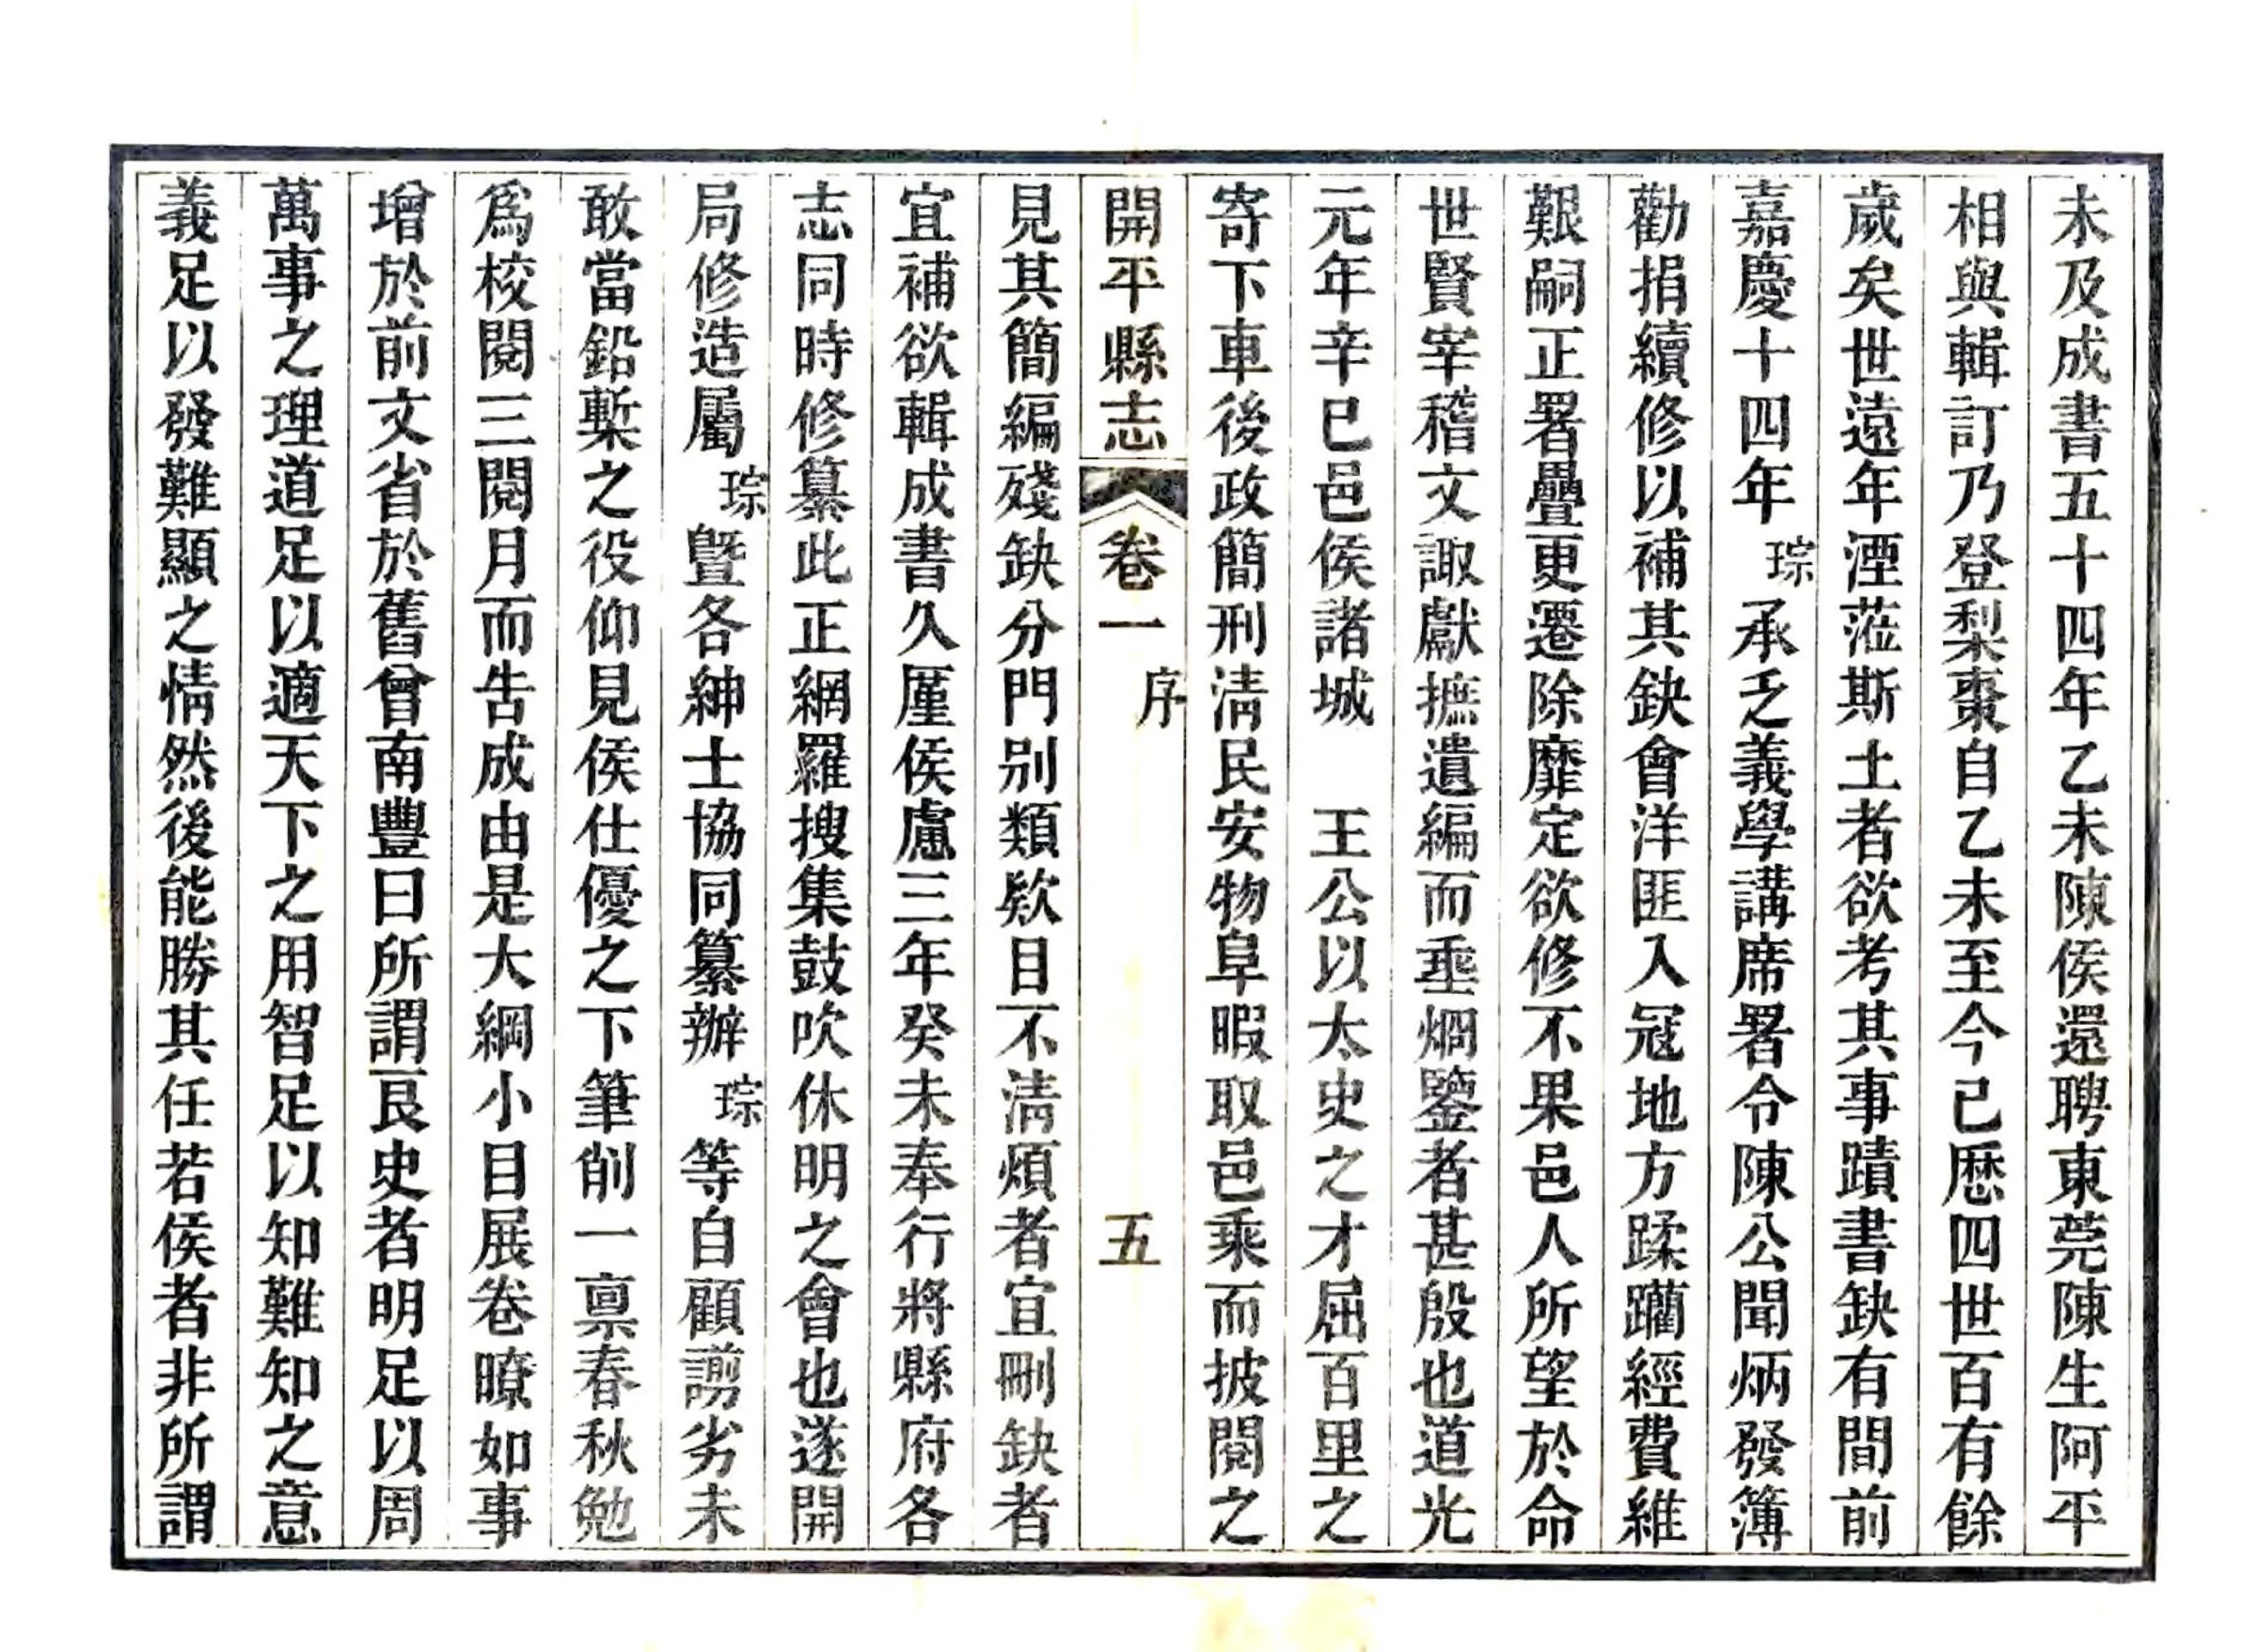 未及成書五十四年乙未陳侯還聘東莞陳生阿平
相與輯訂乃登梨棗自乙未至今已歷四世百有餘
歲矣世遠年湮蒞斯土者欲考其事蹟書缺有間前
嘉慶十四年琮承乏義學講席署令陳公聞炳發簿
勸捐續修以補其缺會洋匪入冦地方蹂躪經費維
艱嗣正署疊更遷除靡定欲修不果邑人所望於命
世賢宰稽文諏獻摭遺編而垂烱鑒者甚殷也道光
元年辛巳邑侯諸城 王公以太史之才屈百里之
寄下車後政簡刑淸民安物阜暇取邑乘而披閱之
開平縣志 卷一 序 五
見其簡編殘缺分門别類欵目不淸煩者宜刪缺者
宜補欲輯成書久厪侯慮三年癸未奉行將縣府各
志同時修纂此正網羅搜集鼓吹休明之會也遂開
局修造屬琮曁各紳士協同纂辦琮等自顧謭劣未
敢當鉛槧之役仰見侯仕優之下筆削一禀春秋勉
爲校閱三閱月而告成由是大綱小目展卷瞭如事
增於前文省於舊曾南豐曰所謂良史者明足以周
萬事之理道足以適天下之用智足以知難知之意
義足以發難顯之情然後能勝其任若侯者非所謂